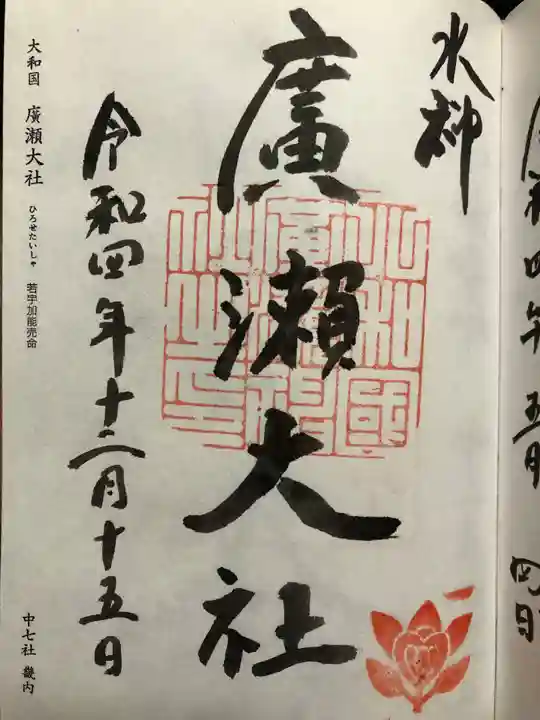 水神
廣瀬大社
令和四年十二月十五日
大和国 廣瀬大社 ひろせたいしゃ 若宇加能売命
中七社 畿内
五月
四日